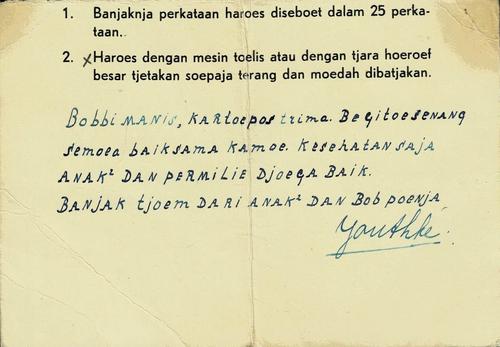 1. Banjaknja perkataan haroes diseboet dalam 25 perka-
taan.
2. xHaroes dengan mesin toelis atau dengan tjara hoeroef
besar tjetakan soepaja terang dan moedah dibatjakan.
Bobbi MANIS, KARtoepos trima. Begitoe senang
semoea baik sama kamoe. Kesehatan saja
ANAK² DAN PERMILIE Djoega BAIK.
BANJAK tjoem DARI ANAK² DAN Bob poenja